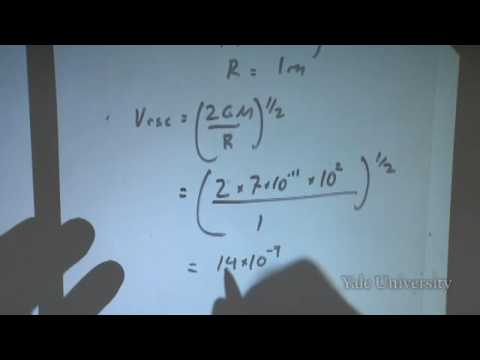 R = 1m
V esc = (2GM/R)^1/2
= (2 × 7×10^-11 × 10^2 / 1)^1/2
= 14×10^-9
Yale University